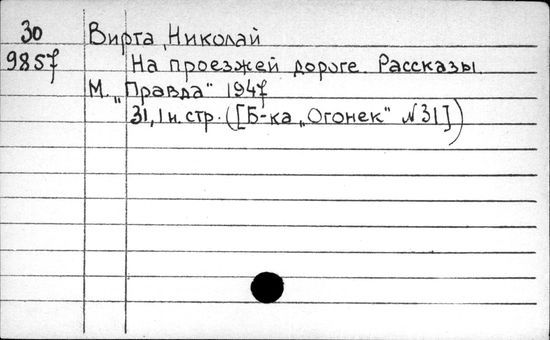 30 Вирта, Николай
9857 На проезжей дороге. Рассказы.
М. „Правда" 1947
31, 1 н. стр. ([Б-ка „Огонек" №31])